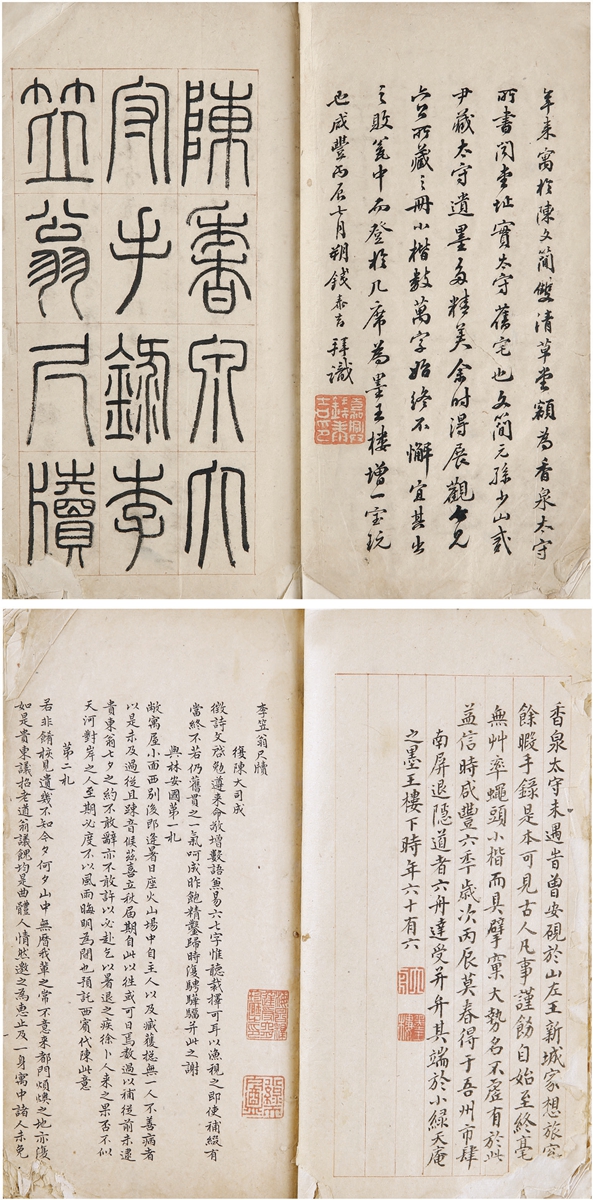 陳香泉太
守手錄李
笠翁尺牘
年來寓於陳文簡雙清草堂額為香泉太守
所書閱堂址實太守舊宅也文簡元孫少山貳
尹藏太守遺墨多精美余時得展觀
公所藏之冊小楷數萬字始終不懈宜其出
之敗簏中而登於几席為墨王樓增一寶玩
也咸豐丙辰七月朔錢泰吉拜識
香泉太守未遇時曾安硯於山左王新城家想旅窗
餘暇手錄是本可見古人凡事謹飭自始至終毫
無艸率蠅頭小楷而具擘窠大勢名不虛有於此
益信時咸豐六季歲次丙辰莫春得于吾州市肆
南屏退隱道者六舟達受并弁其端於小綠天庵
之墨王樓下時年六十有六
李笠翁尺牘
復陳大司成
徵詩文啓勉遵來命敬增數語無易六七字惟聽裁擇可耳以漁視之即使補綴有
當終不若仍舊貫之一氣呵成昨飽精鑿歸時復騁驊騮并此之謝
與林安國第一札
敝寓屋小面西別後即逢暑日座火山場中自主人以及臧獲挺無一人不善病者
以是未及過從且踈音候茲喜立秋届期自此以往或可日焉數過以補從前未逮
貴東翁七夕之約不敢辭亦不敢許以必赴乞以暑退之疾徐卜人来之果否不似
天河對岸之人至期必度不以風雨晦明為間也預託西賓代陳此意
第二札
若非餚核見遺幾不知今夕何夕山中無曆我輩之常不意来都門煩燠之地亦復
如是貴東議招老道翁議餽均是曲體人情然邀之為惠止及一身寓中諸人未免